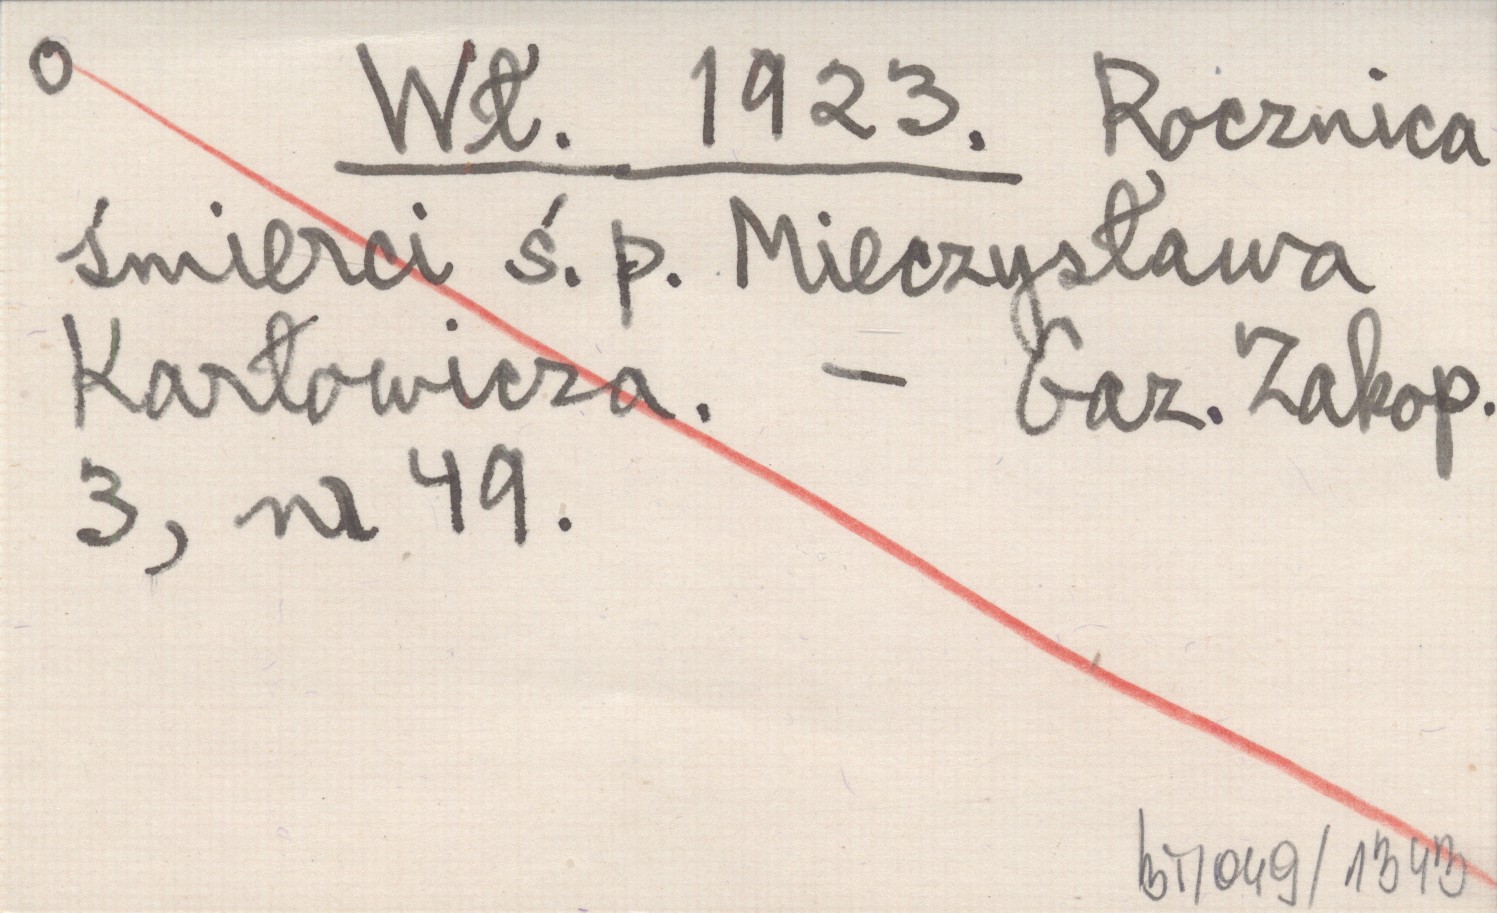 O Wł. 1923. Rocznica
śmierci ś. p. Mieczysława
Karłowicza. – Gaz. Zakop.
3, nr 49.
BT/049/1343